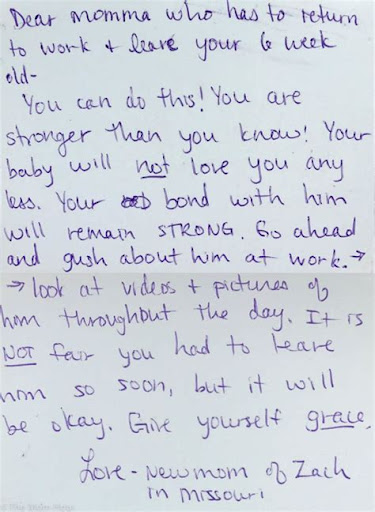 Dear momma who has to return
to work + leave your 6 week
old-
You can do this! You are
stronger than you know! Your
baby will not love you any
less. Your bond with him
will remain STRONG. Go ahead
and gush about him at work. →
→ look at videos + pictures of
him throughout the day. It is
NOT fair you had to leave
him so soon, but it will
be okay. Give yourself grace.
Love - New mom of Zach
in Missouri